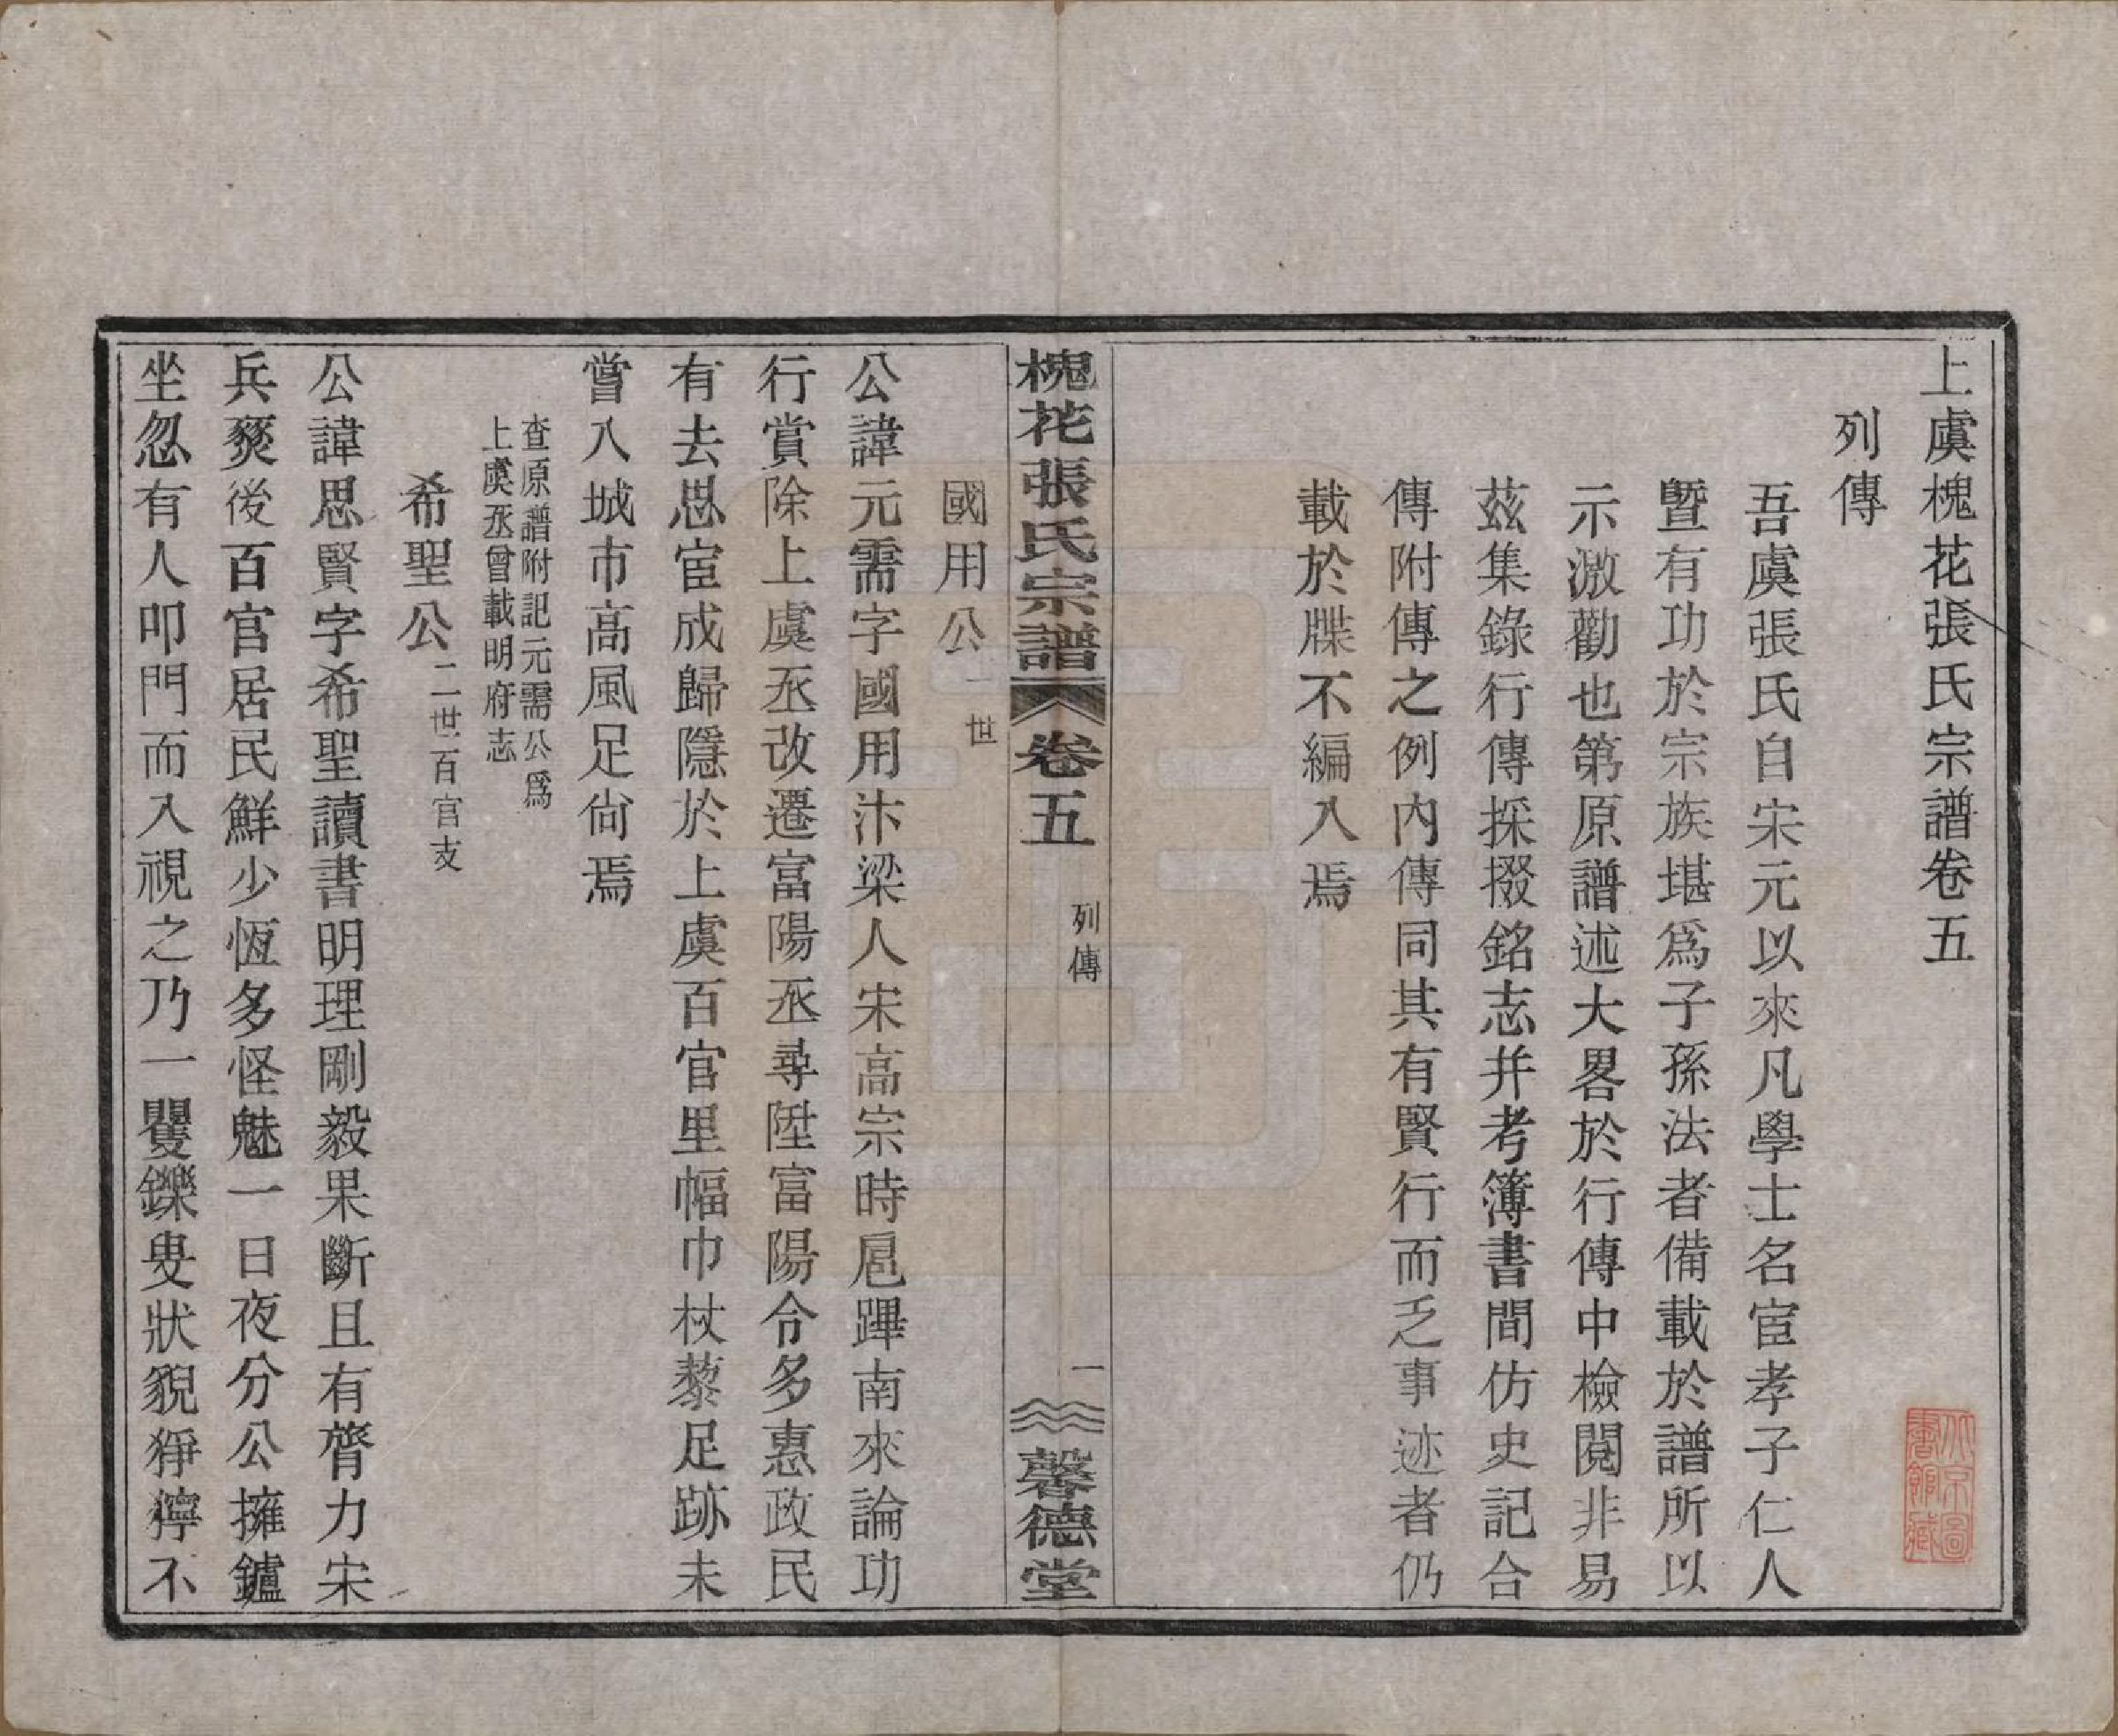 上虞槐花張氏宗譜卷五
列傳
吾虞張氏自宋元以來凡學士名宦孝子仁人
暨有功於宗族堪爲子孫法者備載於譜所以
示激勸也第原譜述大畧於行傳中檢閱非易
茲集錄行傳採掇銘志并考簿書間仿史記合
傳附傳之例內傳同其有賢行而乏事迹者仍
載於牒不編入焉
槐花張氏宗譜 卷五 列傳 一 馨德堂
國用公一世
公諱元需字國用汴梁人宋高宗時扈蹕南來論功
行賞除上虞丞改遷富陽丞尋陞富陽令多惠政民
有去思宦成歸隱於上虞百官里幅巾杖藜足跡未
嘗入城市高風足尙焉
查原譜附記元需公爲
上虞丞曾載明府志
希聖公二世百官支
公諱思賢字希聖讀書明理剛毅果斷且有膂力宋
兵燹後百官居民鮮少恆多怪魅一日夜分公擁鑪
坐忽有人叩門而入視之乃一矍鑠叟狀貌猙獰不
北京圖書館藏